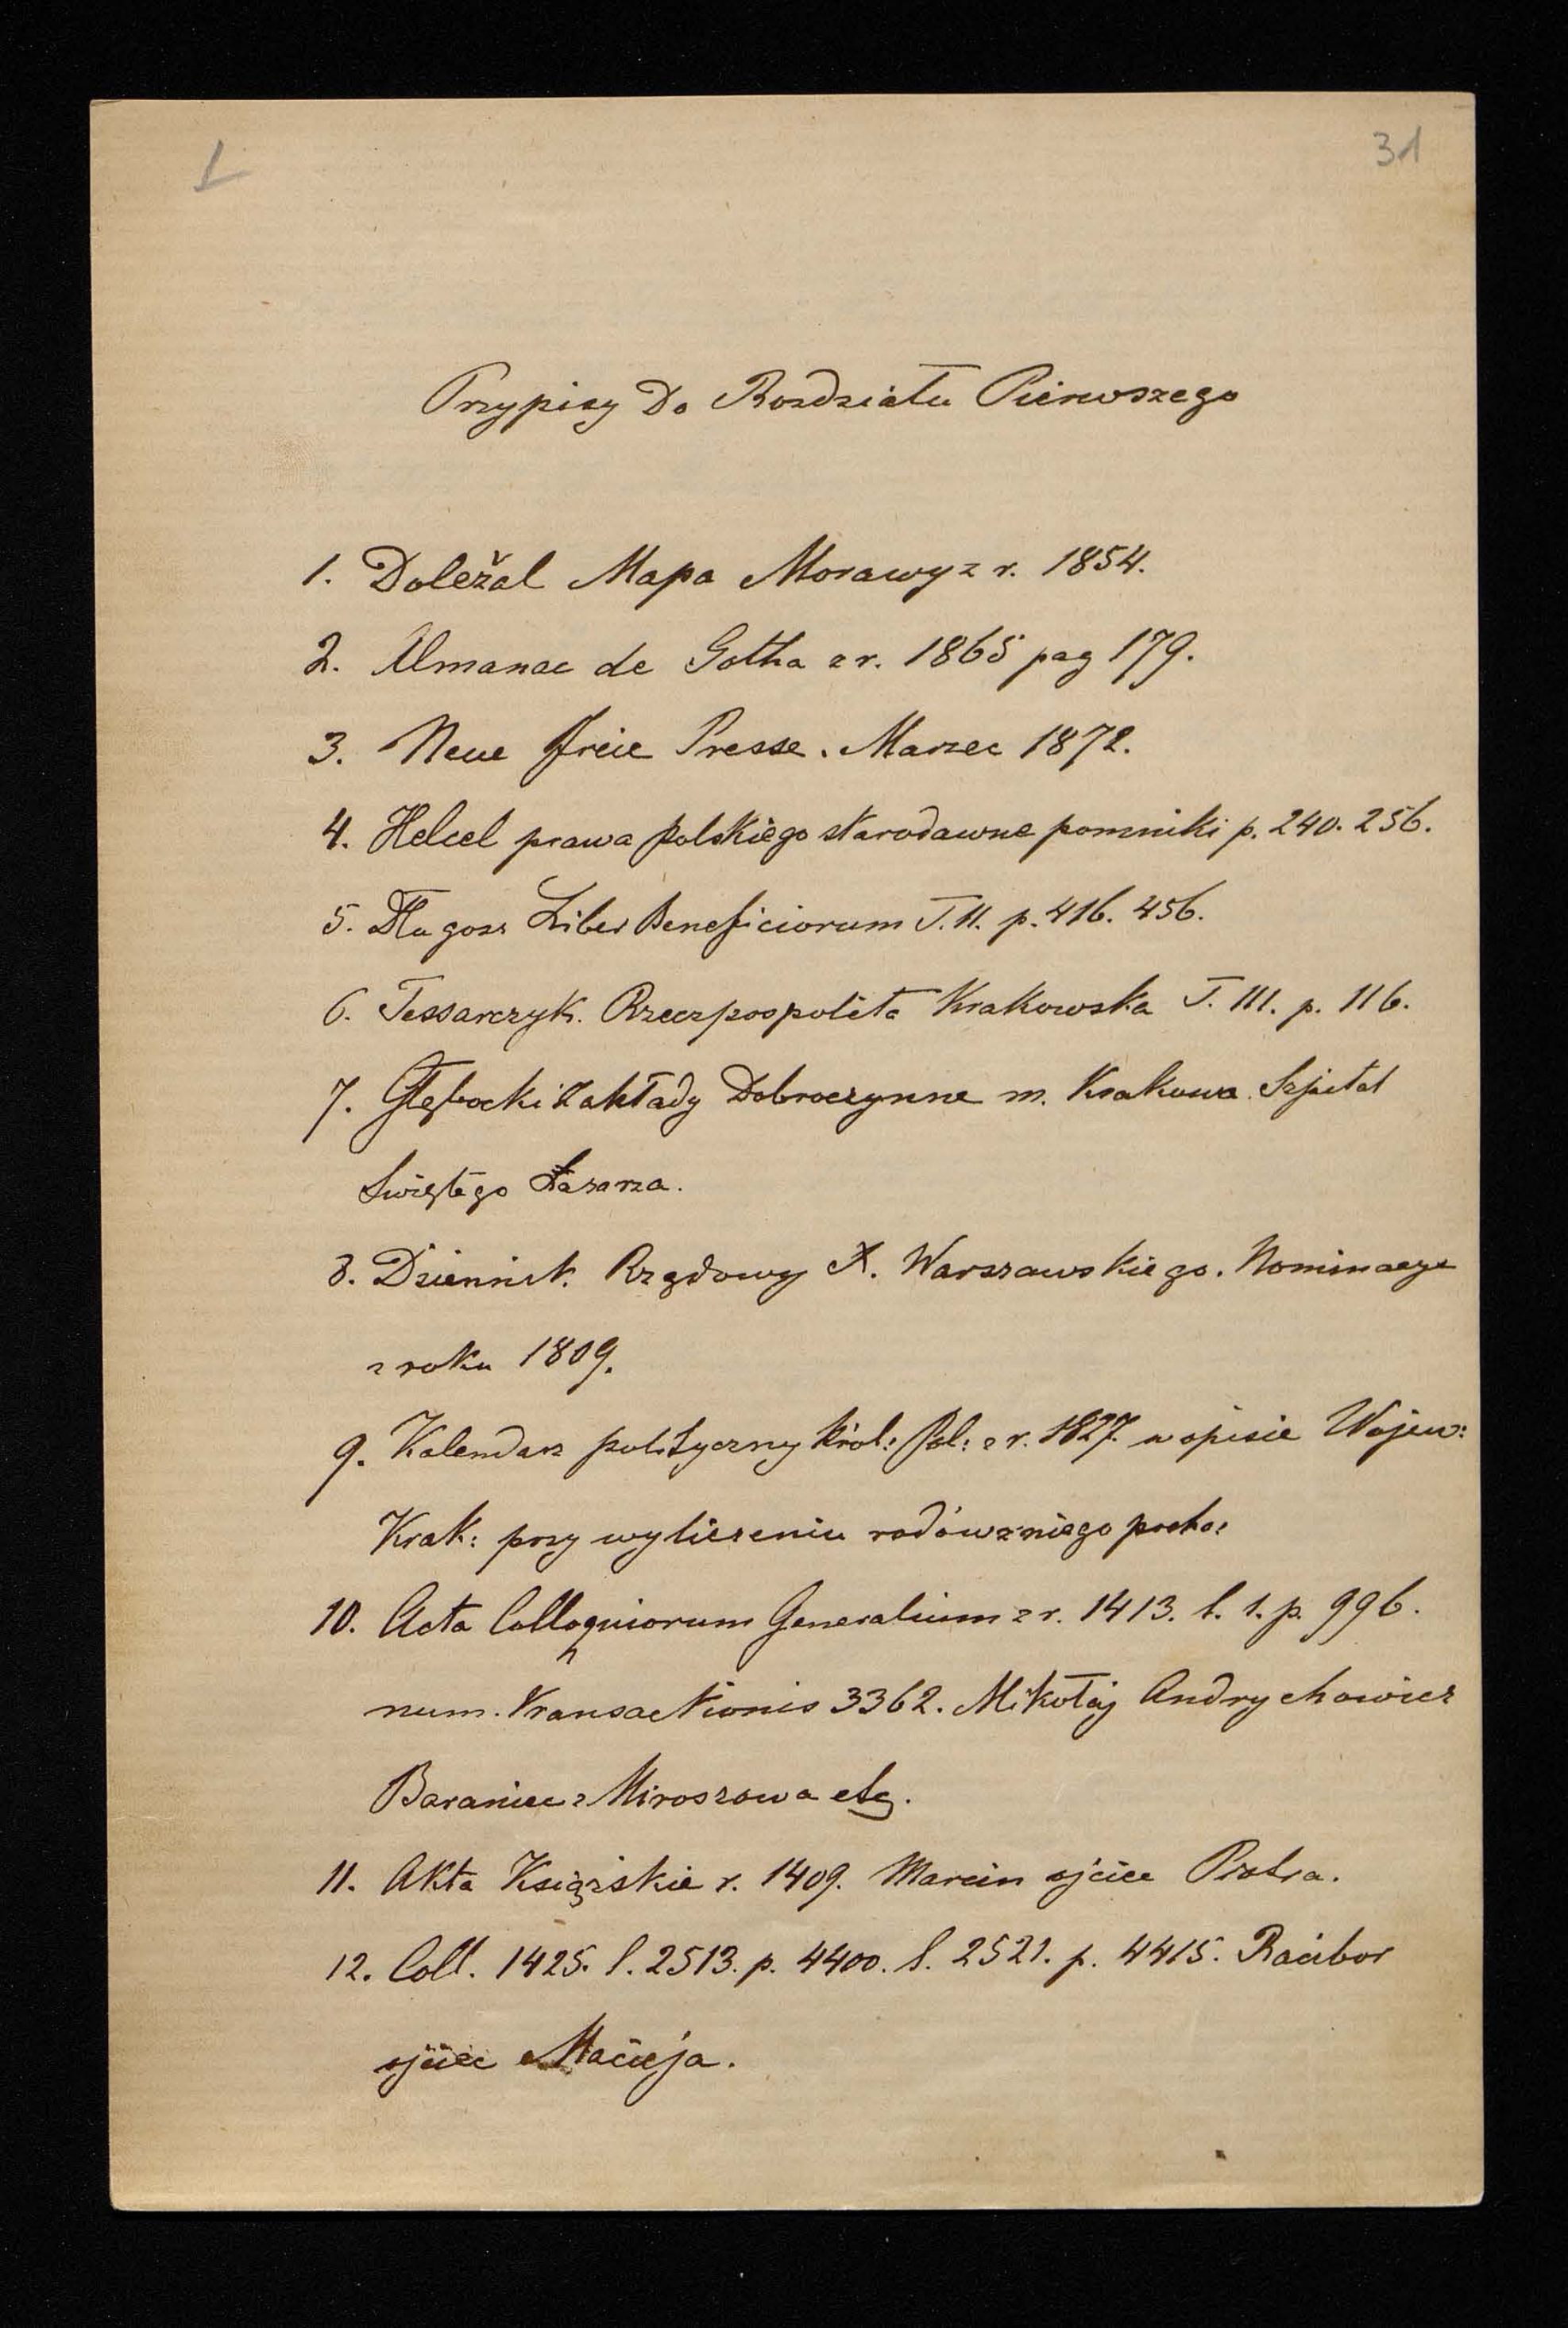 1
31
Przypisy Do Rozdziału Pierwszego
1. Doležal Mapa Morawy z r. 1854.
2. Almanac de Gotha z r. 1865 pag 179.
3. Neue freie Presse. Marzec 1872.
4. Helcel prawa polskiego starodawne pomniki p. 240. 256.
5. Długosz Liber Beneficiorum T. II. p. 416. 456.
6. Tessarczyk. Rzeczpospolita Krakowska T. III. p. 116.
7. Głębocki Zakłady Dobroczynne m. Krakowa. Szpital
Świętego Łazarza.
8. Dziennik Rządowy X. Warszawskiego. Nominacye
z roku 1809.
9. Kalendarz polityczny Król: Pol: z r. 1827. w opisie Wojew:
Krak: przy wyliczeniu rodów z niego pocho:
10. Acta Colloquiorum Generalium z r. 1413. l. 1. p. 996.
num. Transactionis 3362. Mikołaj Andrychowicz
Baraniec z Miroszowa etc.
11. Akta Ksiązskie r. 1409. Marcin ojciec Piotra.
12. Coll. 1425. l. 2513. p. 4400. l. 2521. p. 4415. Racibor
ojciec Macieja.